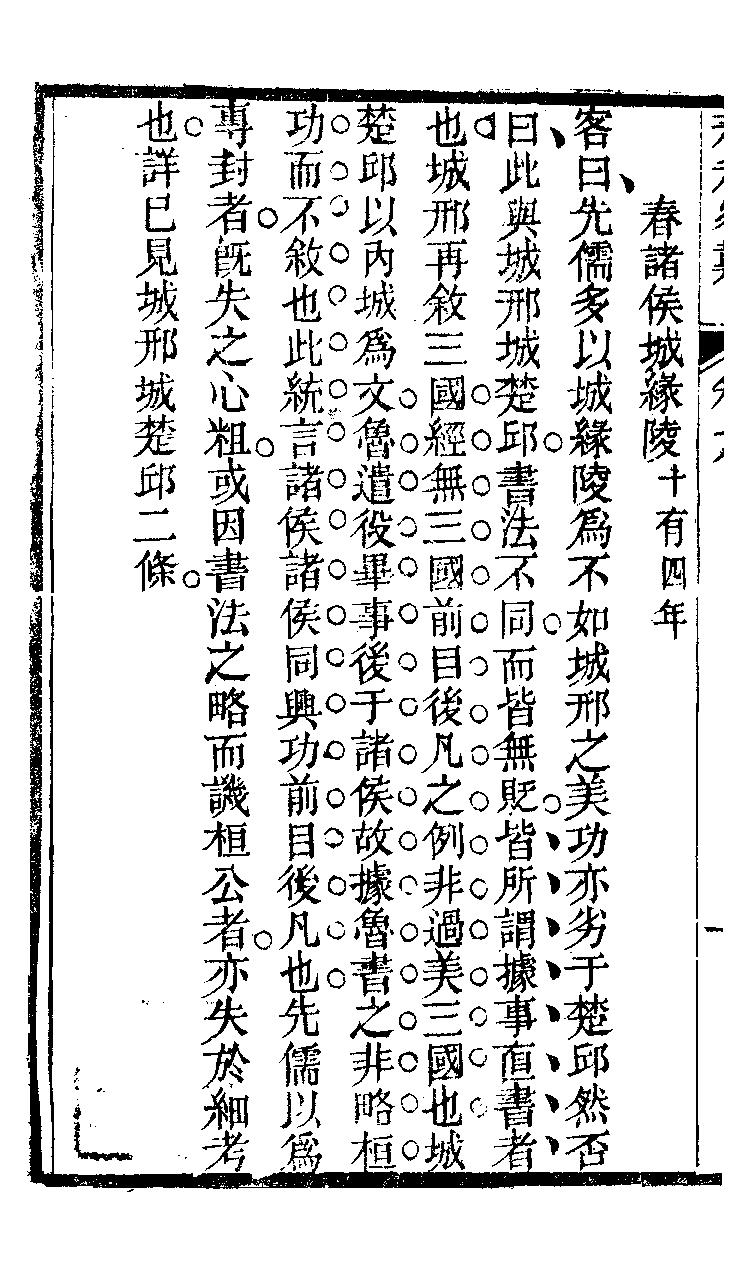 春諸侯城緣陵十有四年
客曰先儒多以城緣陵爲不如城邢之美功亦劣于楚邱然否
曰此與城邢城楚邱書法不同而皆無貶皆所謂據事直書者
也城邢再敘三國經無三國前目後凡之例非過美三國也城
楚邱以內城爲文魯遣役畢事後于諸侯故據魯書之非略桓
功而不敘也此統言諸侯諸侯同興功前目後凡也先儒以爲
專封者旣失之心粗或因書法之略而譏桓公者亦失於細考
也詳已見城邢城楚邱二條